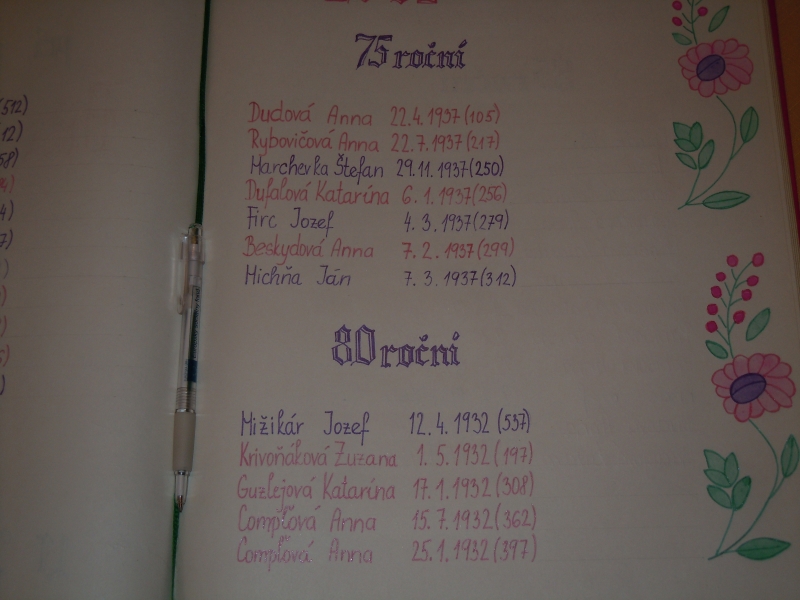 512)
12)
58)
4)
7)
75 roční
Dudová Anna 22.4.1937 (105)
Rybovičová Anna 22.7.1937 (217)
Marchevka Štefan 29.11.1937 (250)
Dufalová Katarína 6.1.1937 (256)
Firc Jozef 4.3.1937 (279)
Beskydová Anna 7.2.1937 (299)
Michňa Ján 7.3.1937 (312)
80 roční
Mižikár Jozef 12.4.1932 (537)
Krivoňáková Zuzana 1.5.1932 (197)
Guzlejová Katarína 17.1.1932 (308)
Compľová Anna 15.7.1932 (362)
Compľová Anna 25.1.1932 (397)